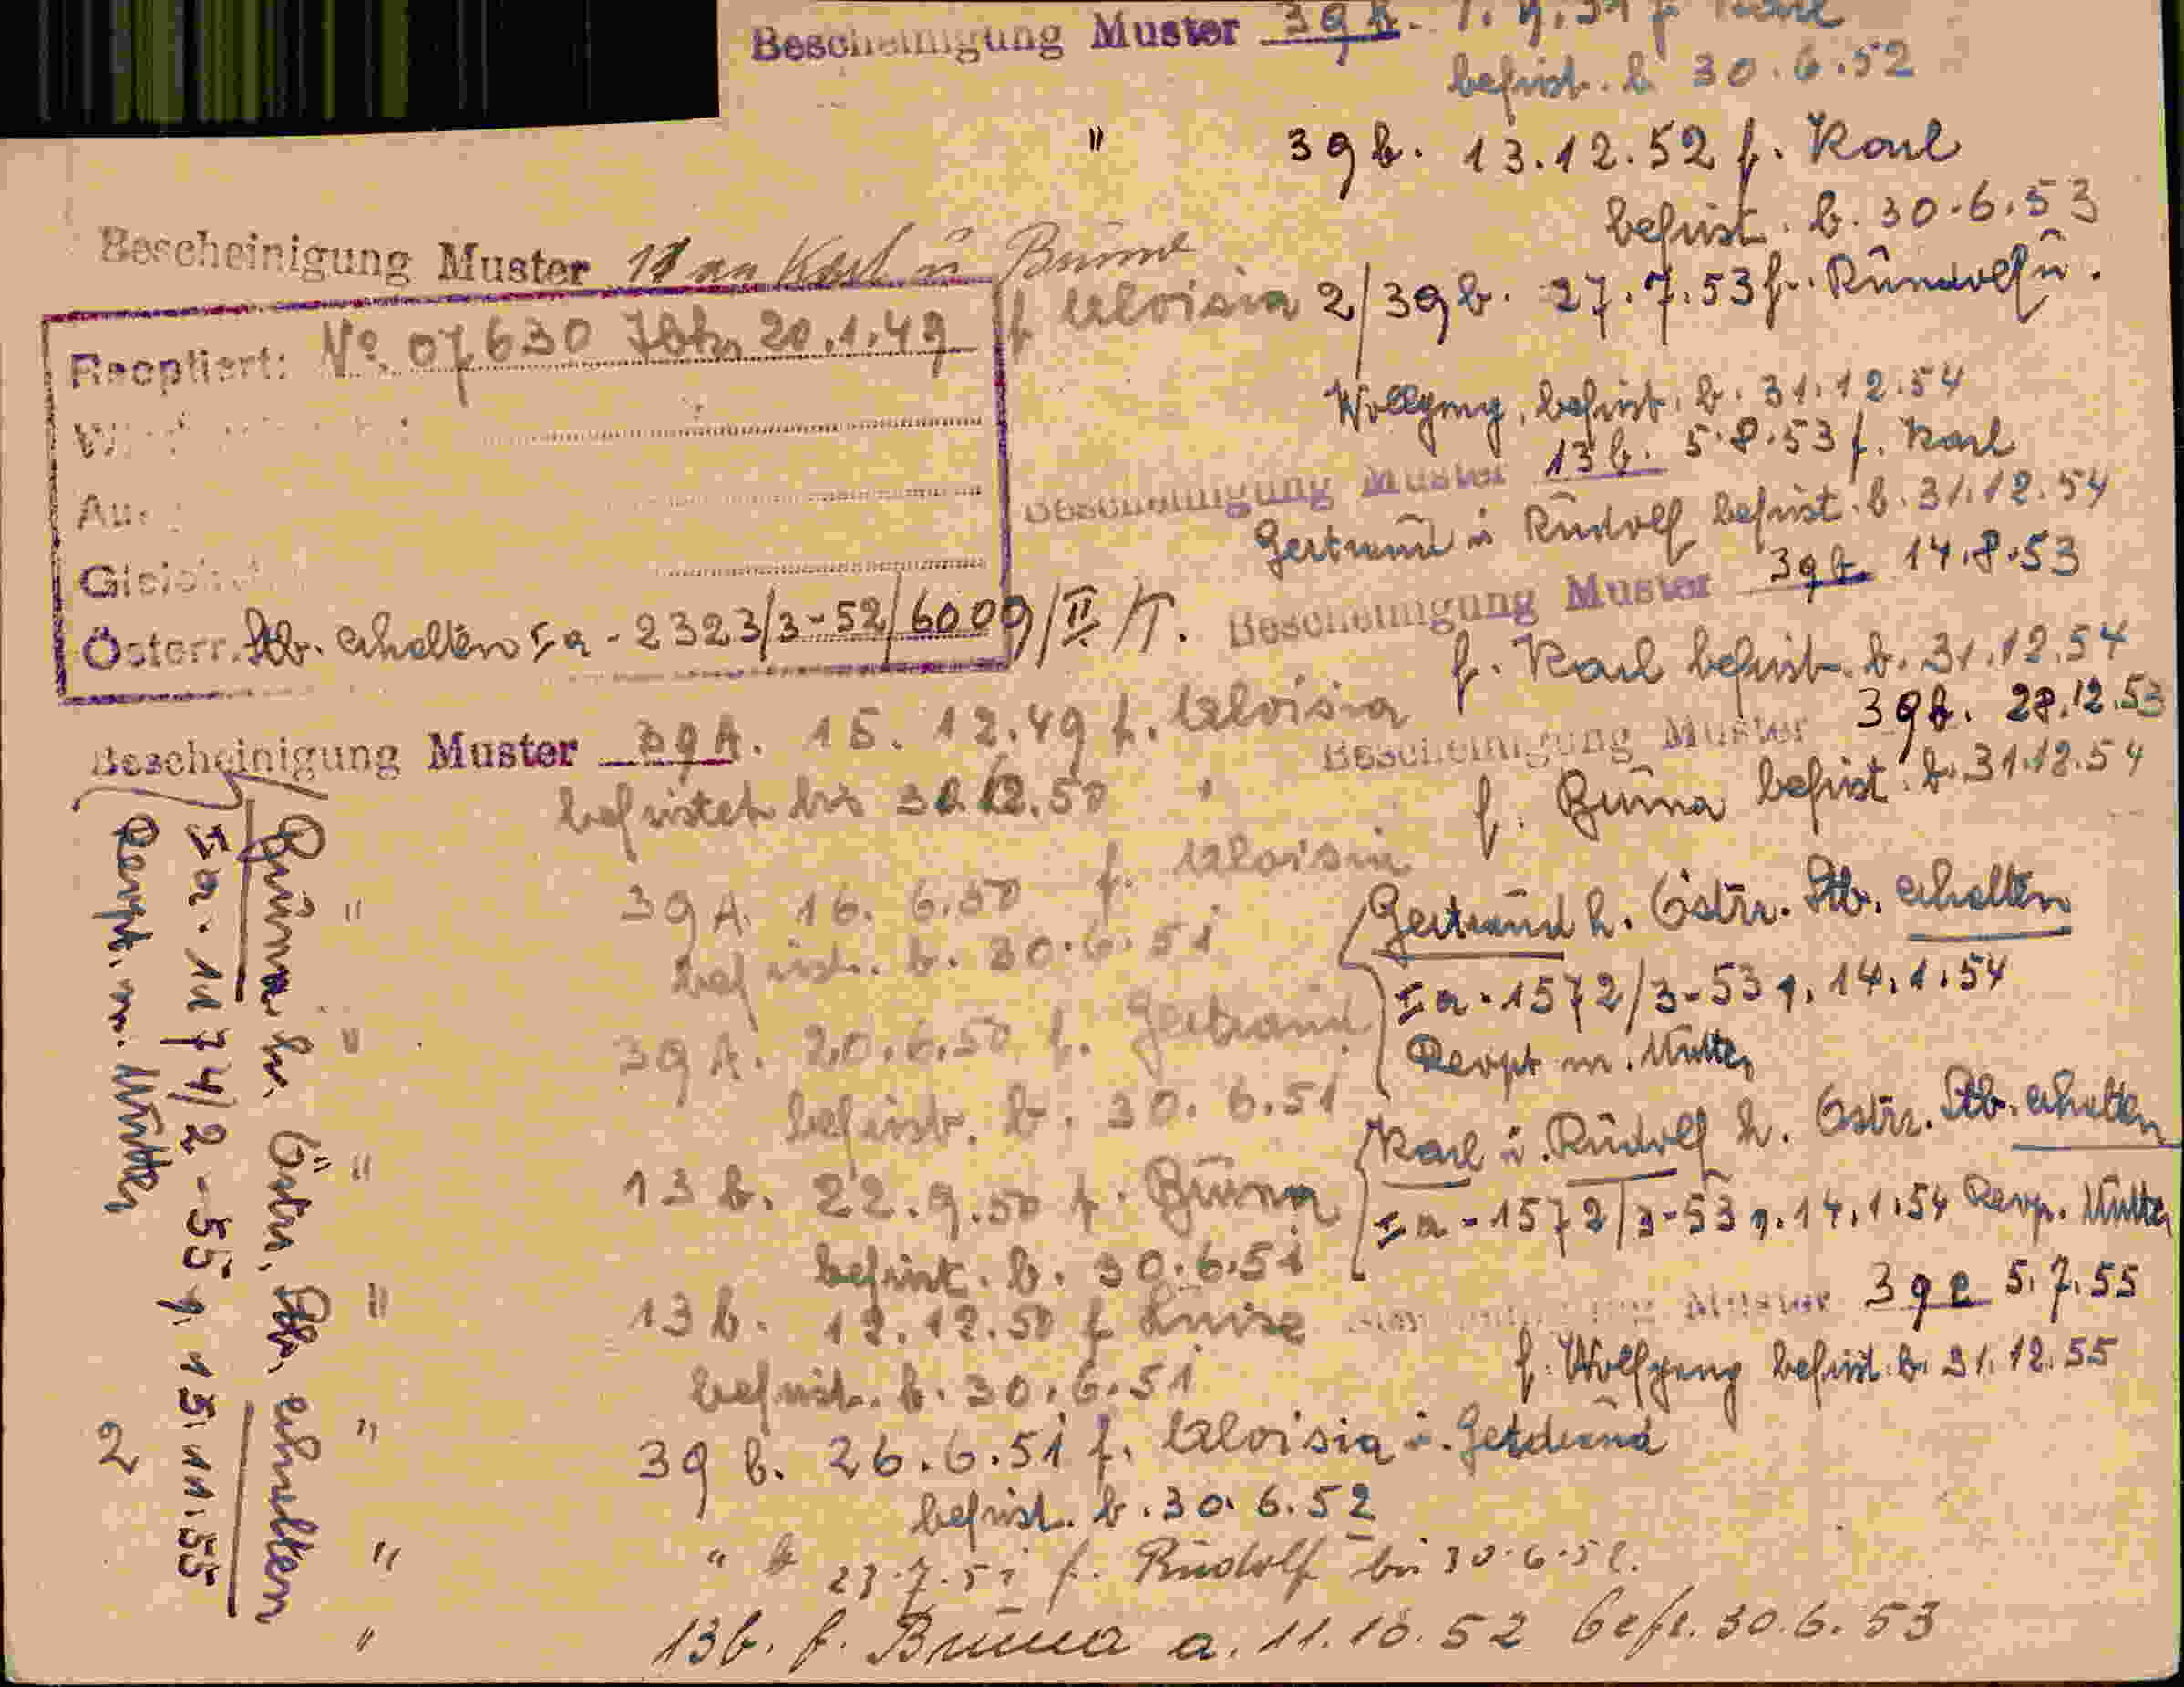 Bescheinigung Muster 39 b. f. Karl
befrist. b. 30.6.52
" 39 b. 13.12.52 f. Karl
befrist. b. 30.6.53
Bescheinigung Muster 11 an Karl u
f Aloisia
2/39 b. 27.7.53 f. Rudolf u.
Wolfgang, befrist. b. 31.12.54
Reoptiert: No. 07630 Ibk, 20.1.49
Bescheinigung Muster 13 b. 5.8.53 f. Karl
Gertraud u Rudolf befrist. b. 31.12.54
Österr. Stb. erhalten Ia - 2323/3-52/6009/II/T.
Bescheinigung Muster 39 b. 14.8.53
f. Karl befrist. b. 31.12.54
Bescheinigung Muster 39 b. 28.12.53
f. Bruna befrist. b. 31.12.54
Bescheinigung Muster 39 A. 15.12.49 f. Aloisia
befristet bis 31.12.50
" 39 A. 16.6.50 f. Aloisia
befrist. b. 30.6.51
" 39 A. 20.6.50 f. Gertraud
befrist. b. 30.6.51
" 13 b. 22.9.50 f. Bruna
befrist. b. 30.6.51
" 13 b. 12.12.50 f Luise
befrist. b. 30.6.51
" 39 b. 26.6.51 f. Aloisia u. Gertraud
befrist. b. 30.6.52
" " b 23.7.51 f. Rudolf bis 30.6.52.
" 13b. f. Bruna a. 11.10.52 befr. 30.6.53
Gertraud h. Östr. Stb. erhalten
Ia - 1572/3-53 v. 14.1.54
Reopt m. Mutter
Karl u. Rudolf h. Östr. Stb. erhalten
Ia - 1572/3-53 v. 14.1.54 Reop. Mutter
Muster 39 e 5.7.55
f. Wolfgang befrist. b. 31.12.55
Bruna h. Östr. Stb. erhalten
Ia - 1174/2-55 v. 15.11.55
Reopt. m. Mutter
2